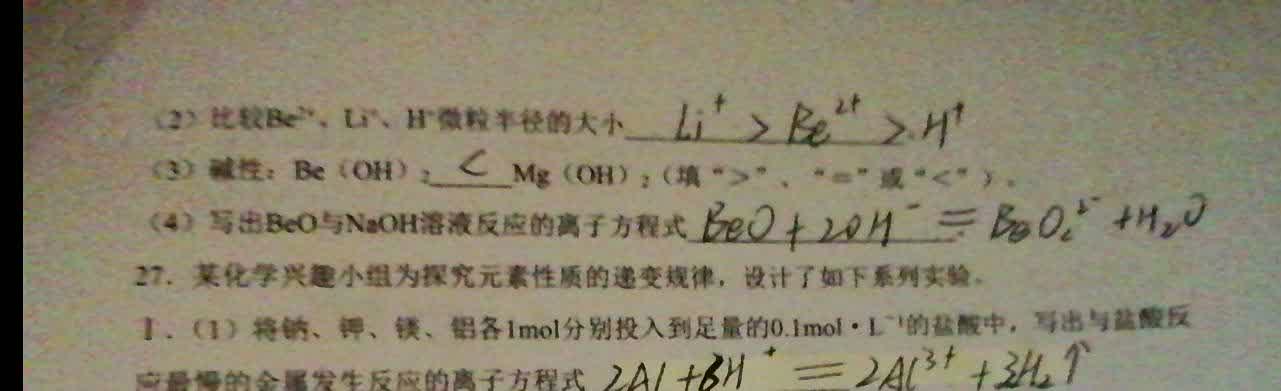 (2) 比较Be²⁺、Li⁺、H⁺微粒半径的大小 Li⁺ > Be²⁺ > H⁺
(3) 碱性：Be（OH）₂ < Mg（OH）₂（填“>”、“=”或“<”）。
(4) 写出BeO与NaOH溶液反应的离子方程式 BeO + 2OH⁻ = BeO₂²⁻ + H₂O
27. 某化学兴趣小组为探究元素性质的递变规律，设计了如下系列实验。
I.（1）将钠、钾、镁、铝各1mol分别投入到足量的0.1mol·L⁻¹的盐酸中，写出与盐酸反
应最慢的金属发生反应的离子方程式 2Al + 6H⁺ = 2Al³⁺ + 3H₂↑